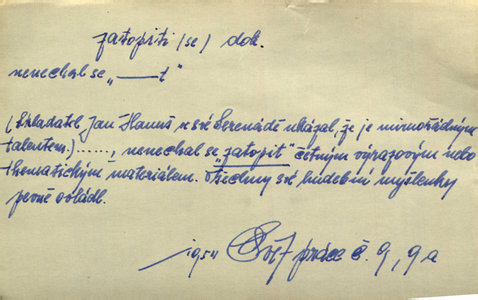 zatopiti (se) dok.
nenechal se „——t"
(Skladatel Jan Hanuš v své Serenádě ukázal, že je mimořádným
talentem.) ....., nenechal se „zatopit" četným výrazovým nebo
thematickým materiálem. Všechny své hudební myšlenky
pevně ovládl.
1954 práce č. 9, 9a